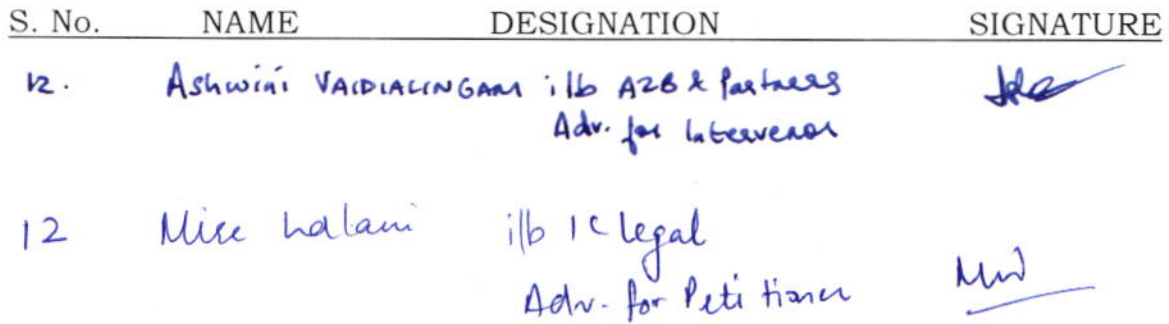 S. No. NAME DESIGNATION SIGNATURE
12. Ashwini VAIDIALINGAM i/b AZB & Partners
Adv. for Intervenor
12 Lalani i/b IC Legal
Adv. for Petitioner